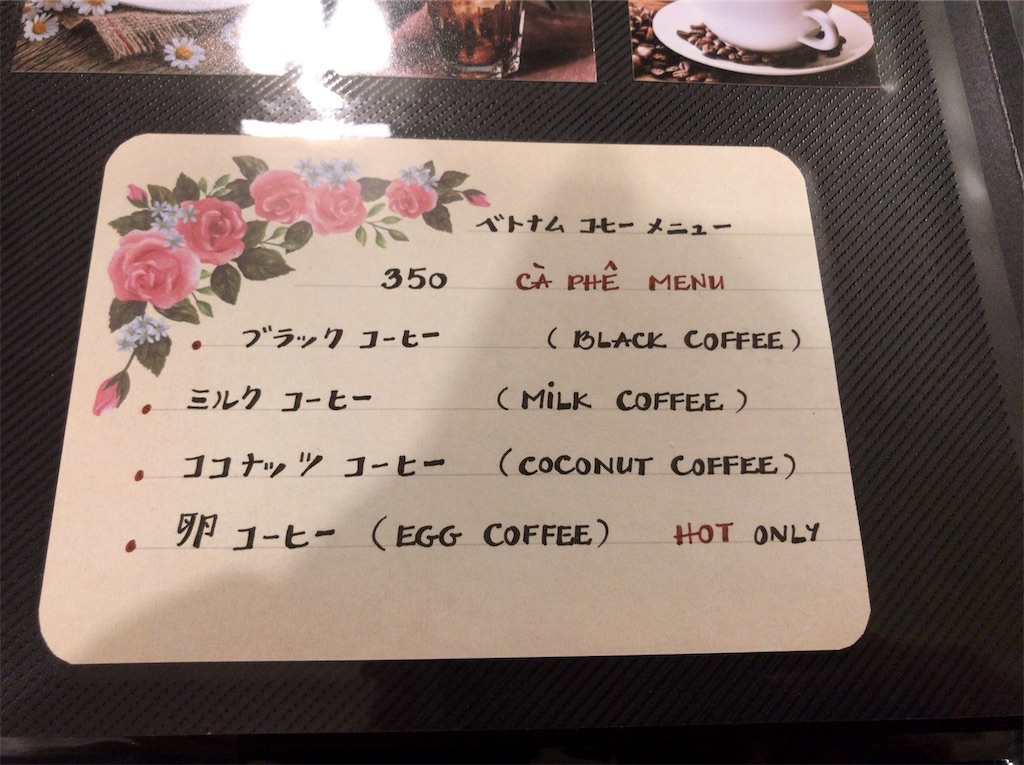 ベトナム コーヒー メニュー
350 CÀ PHÊ MENU
• ブラック コーヒー (BLACK COFFEE)
• ミルク コーヒー (MILK COFFEE)
• ココナッツ コーヒー (COCONUT COFFEE)
• 卵 コーヒー (EGG COFFEE) HOT ONLY